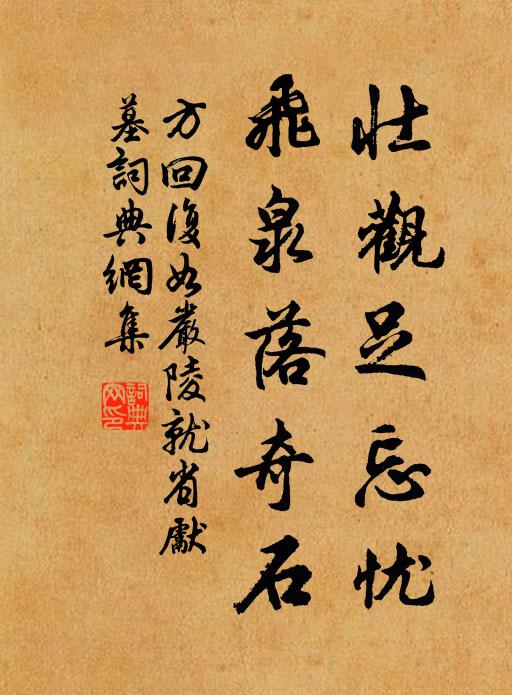 壯觀足忘忧
飛泉落奇石
方回復如嚴陵就省獻
墓詞典網集
詞典网印